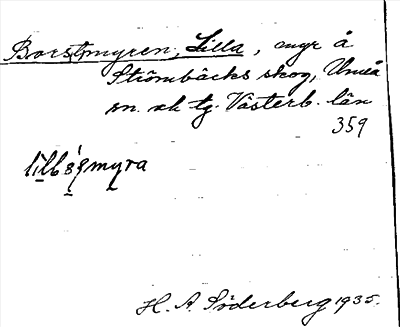 Borstmyren, Lilla, myr å
Strömbäcks skog, Umeå
sn. ock tg. Västerb. län
359
H. A. Söderberg 1935.